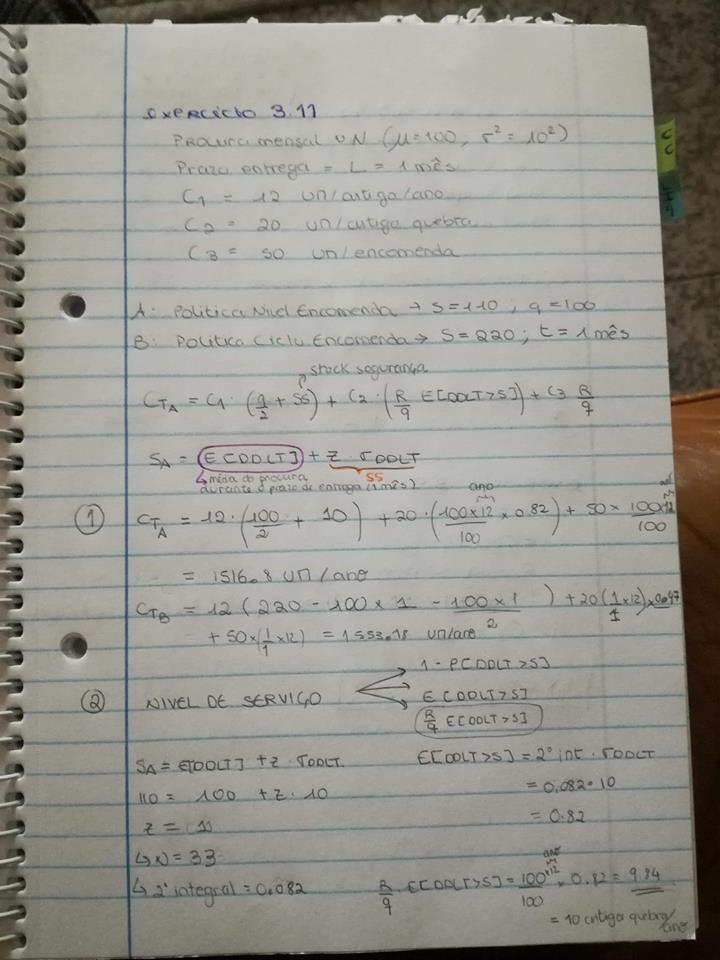 Exercício 3.11
Procura mensal ∪ N (μ=100, σ² = 10²)
Prazo entrega = L = 1 mês
C1 = 12 un/artigo/ano
C2 = 20 un/artigo quebra
C3 = 50 un/encomenda
A: Política Nível Encomenda → S=110, q=100
B: Política Ciclo Encomenda → S=220; t=1 mês
stock segurança
CTA = C1 · (q/2 + SS) + C2 · (R/q E[DDLT>S]) + C3 R/q
SA = E[DDLT] + Z · σDDLT
↳ média da procura SS
durante o prazo de entrega (1 mês)
ano ano
① CTA = 12 · (100/2 + 10) + 20 · (100×12/100 × 0.82) + 50 × 100×12/100
= 1516.8 un/ano
CTB = 12 (220 - 100 × 1 - 100×1/2) + 20 (1/1 ×12) × 0.47
+ 50 × (1/1 ×12) = 1553.18 un/ano
1 - P[DDLT>S]
② NIVEL DE SERVIÇO E[DDLT>S]
R/q E[DDLT>S]
SA = E[DDLT] + Z · σDDLT. E[DDLT>S] = 2º int · σDDLT
110 = 100 + Z · 10 = 0.082 · 10
Z = 1 = 0.82
↳ N = 33
ano
↳ 2º integral = 0.082 R/q · E[DDLT>S] = 100×12/100 × 0.82 = 9.84
= 10 artigos quebra/ano